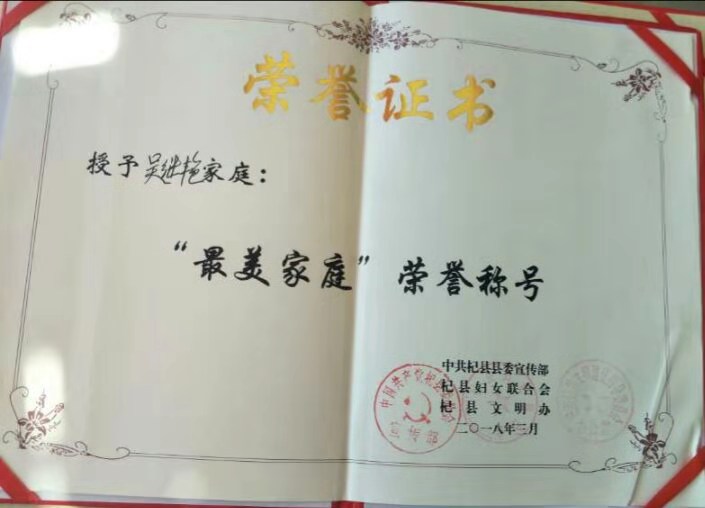 荣誉证书
授予吴继艳家庭：
“最美家庭”荣誉称号
中共杞县县委宣传部
杞县妇女联合会
杞县文明办
二〇一八年三月